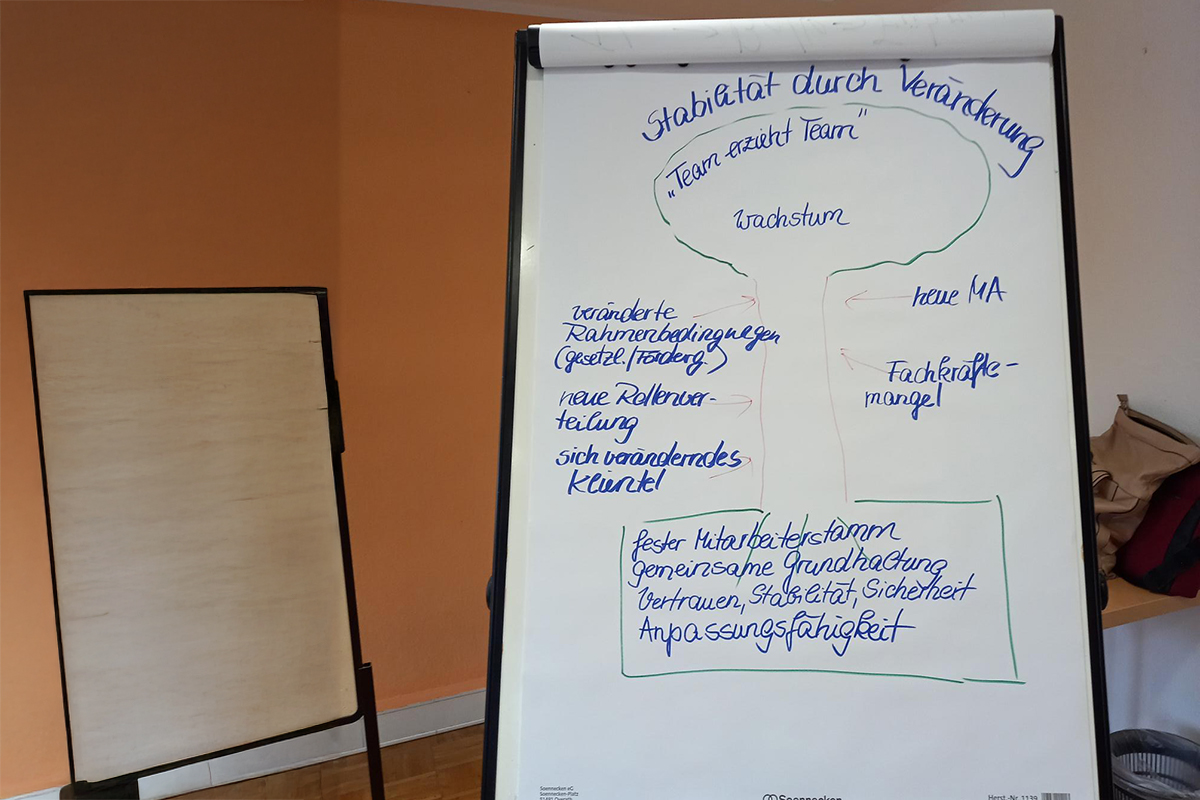 Stabilität durch Veränderung
„Team erzieht Team"
Wachstum
veränderte
Rahmenbedingungen
(gesetzl./Förderg.)
neue Rollenver-
teilung
sich veränderndes
Klientel
neue MA
Fachkräfte-
mangel
fester Mitarbeiterstamm
gemeinsame Grundhaltung
Vertrauen, Stabilität, Sicherheit
Anpassungsfähigkeit
Soennecken eG
Soennecken-Platz
51491 Overath
Soennecken
Herst.-Nr. 1139